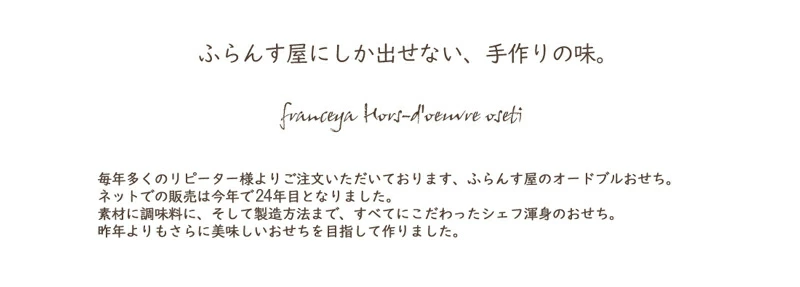 ふらんす屋にしか出せない、手作りの味。
franceya Hors-d'oeuvre oseti
毎年多くのリピーター様よりご注文いただいております、ふらんす屋のオードブルおせち。
ネットでの販売は今年で24年目となりました。
素材に調味料に、そして製造方法まで、すべてにこだわったシェフ渾身のおせち。
昨年よりもさらに美味しいおせちを目指して作りました。